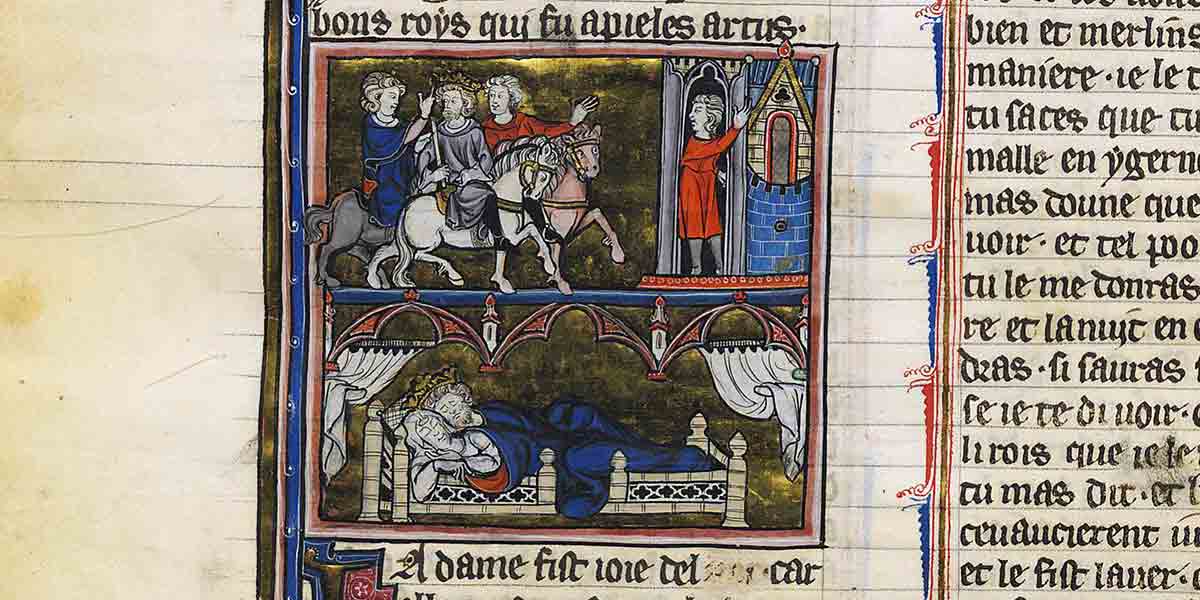 bons roys qui fu apieles artus.
A dame fist ioie del car
bien et merlins
maniere . ie le
tu saces que
malle en ygern
mas doune que
uoir . et tel poo
tu le me donras
re et la nuyt en
dras . si sauras
se ie te di uoir .
li rois que ie le
tu mas dit . et
ceuaucierent
et le fist lauer .